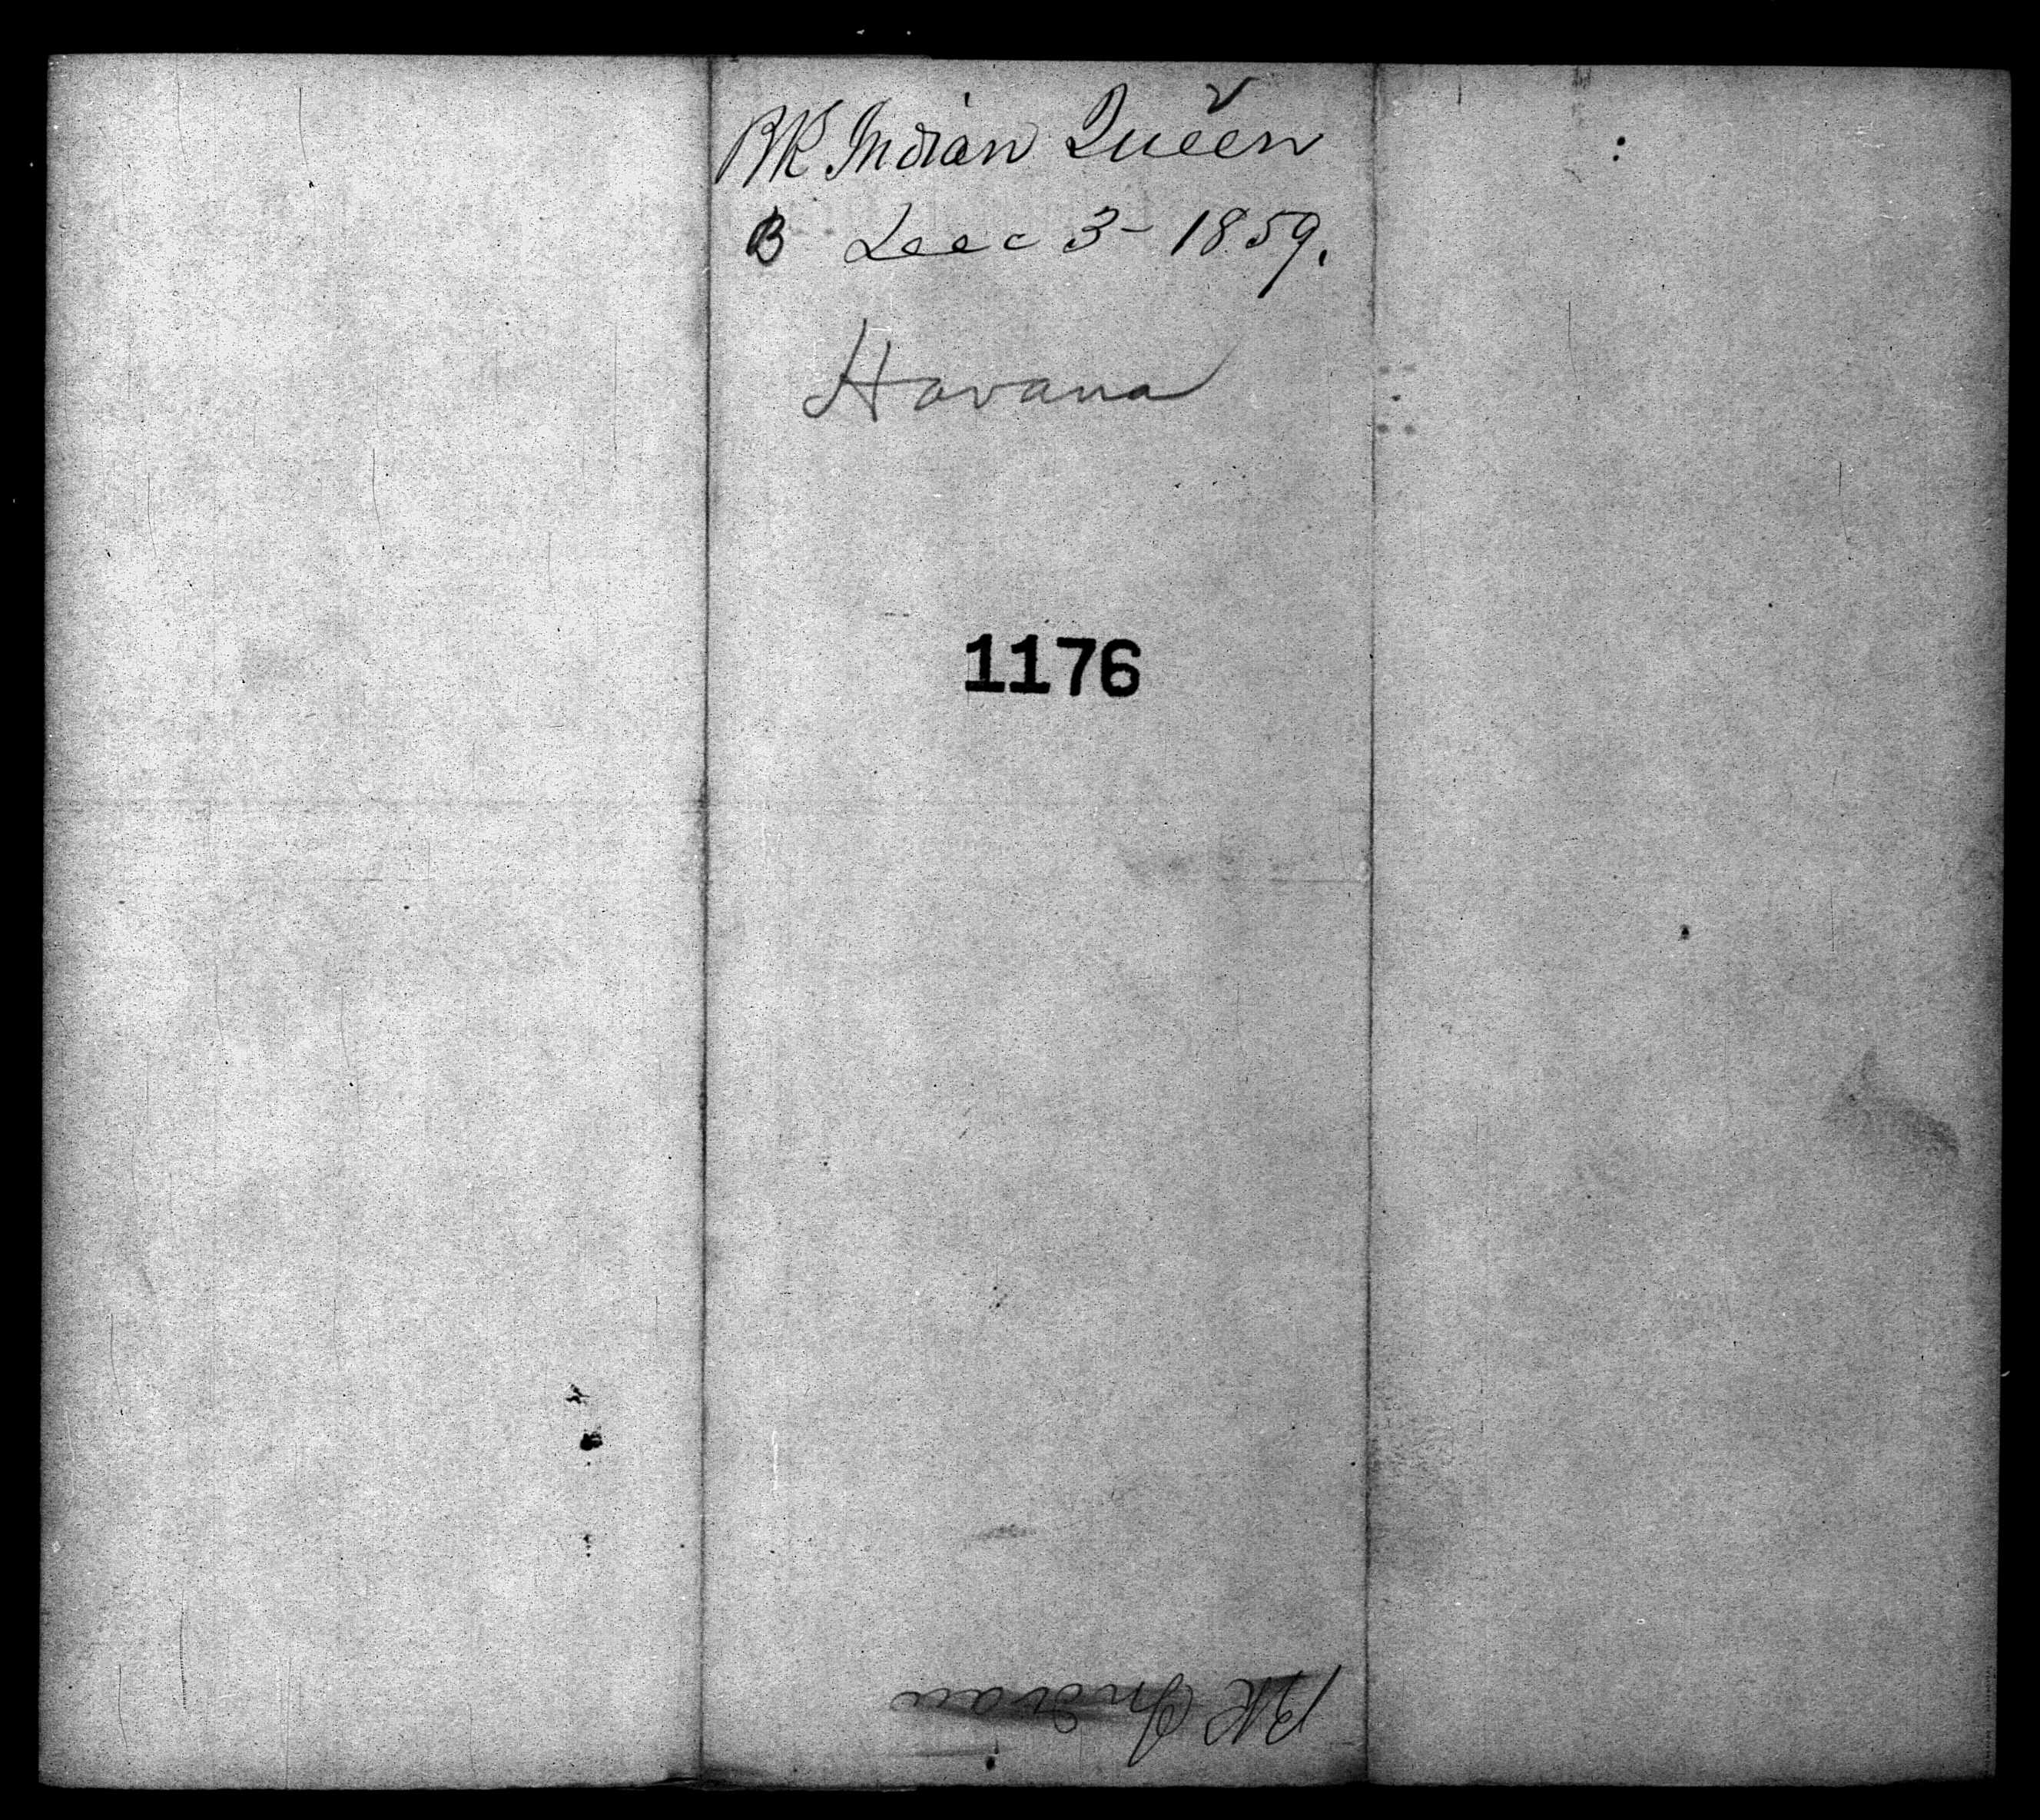 BK Indian Queen
B Decc 3 - 1859.
Havana
1176
BK Indian